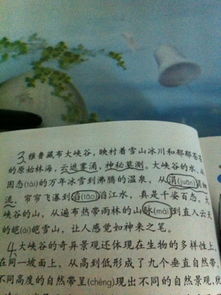 3.雅鲁藏布大峡谷,映衬着雪山冰川和郁郁苍苍
的原始林海,云遮雾涌,神秘莫测。大峡谷的水,从
固态(tài)的万年冰雪到沸腾的温泉,从涓(juān)涓
流、帘帘飞瀑到滔(tāo)滔江水,真是千姿百态。大
峡谷的山,从遍布热带雨林的山脉(mài)到直入云天
的皑(ái)皑雪山,让人感觉如神来之笔。
4.大峡谷的奇异景观还体现在生物的多样性上
在同一坡面上,从高到低形成了九个垂直自然带,
不同高度的自然带呈(chéng)现出不同的自然景观,